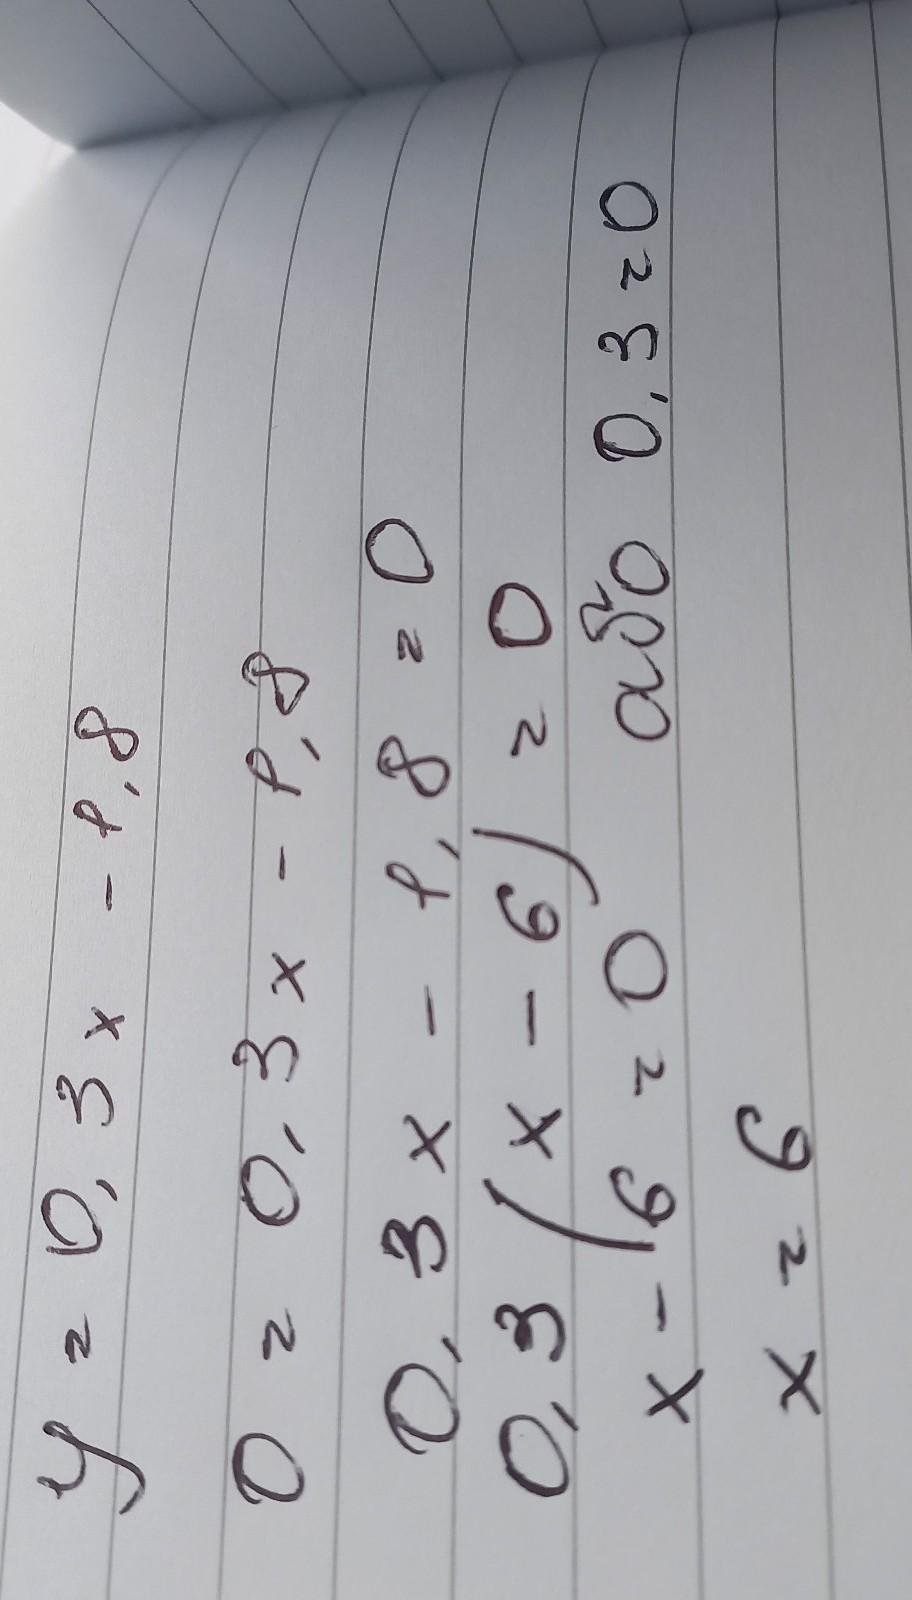 y = 0,3x - 1,8
0 = 0,3x - 1,8
0,3x - 1,8 = 0
0,3(x - 6) = 0
x - 6 = 0 або 0,3 = 0
x = 6